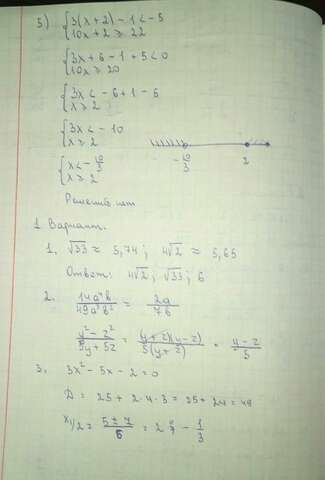 5) { 3(x+2) - 1 < -5
{ 10x + 2 ≥ 22
{ 3x + 6 - 1 + 5 < 0
{ 10x ≥ 20
{ 3x < -6 + 1 - 5
{ x ≥ 2
{ 3x < -10
{ x ≥ 2
-10/3 2
{ x < -10/3
{ x ≥ 2
Решений нет
1 Вариант.
1. √33 ≈ 5,74 ; 4√2 ≈ 5,65
Ответ: 4√2 ; √33 ; 6
2. =  2a/7b
(y² - z²)/(5y + 5z) = (y+z)(y-z)/5(y+z) = (y-z)/5
3. 3x² - 5x - 2 = 0
D = 25 + 2·4·3 = 25 + 24 = 49
x1/2 = (5 ± 7)/6 = 2 и - 1/3